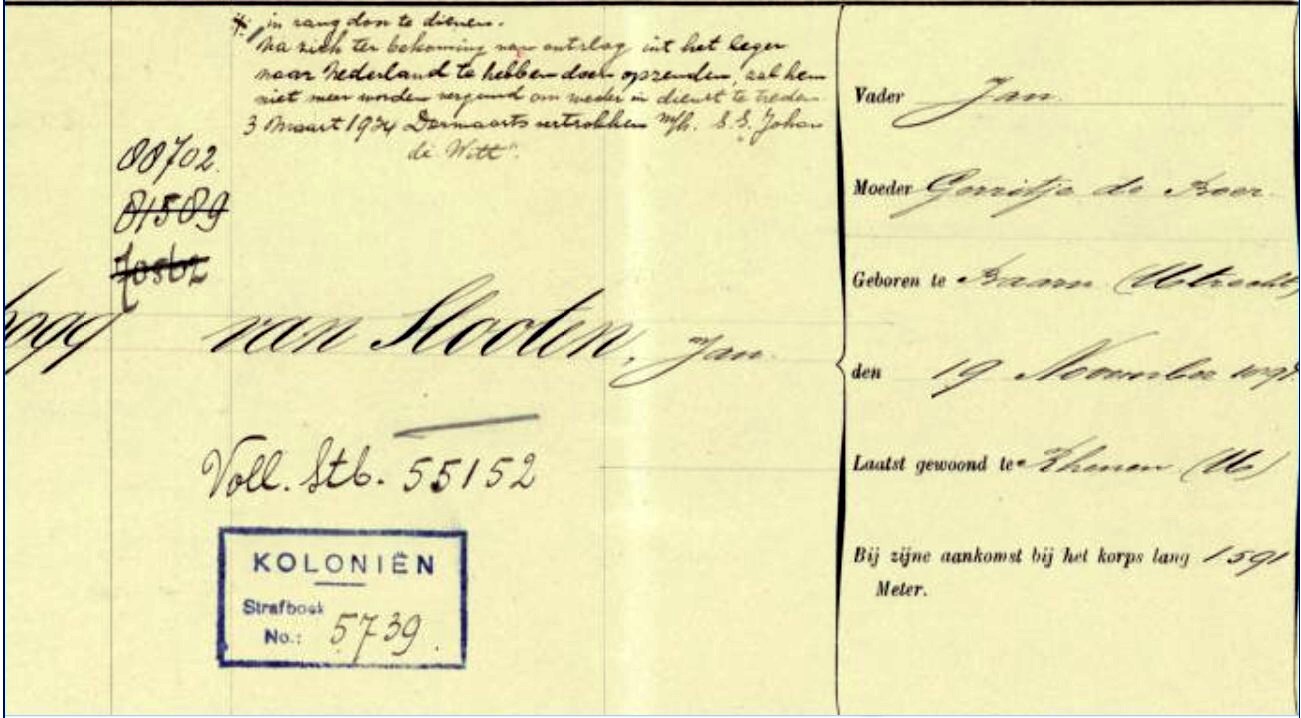 in rang don te dienen.
Na zich ter bekoming van ontslag uit het leger
naar Nederland te hebben doen opzenden, zal hem
niet meer worden vergund om weder in dienst te treden
3 Maart 1924 Dermaarts vertrokken m/h. S.S. Johan
de Witt".
88702
81589
van Slooten, Jan.
Voll. Stb. 55152
KOLONIËN
Strafboek
No.: 5739.
Vader Jan.
Moeder Gerritje de Boer.
Geboren te Baarn (Utrecht)
den 19 November
Laatst gewoond te Rhenen (U)
Bij zijne aankomst bij het korps lang 1591
Meter.